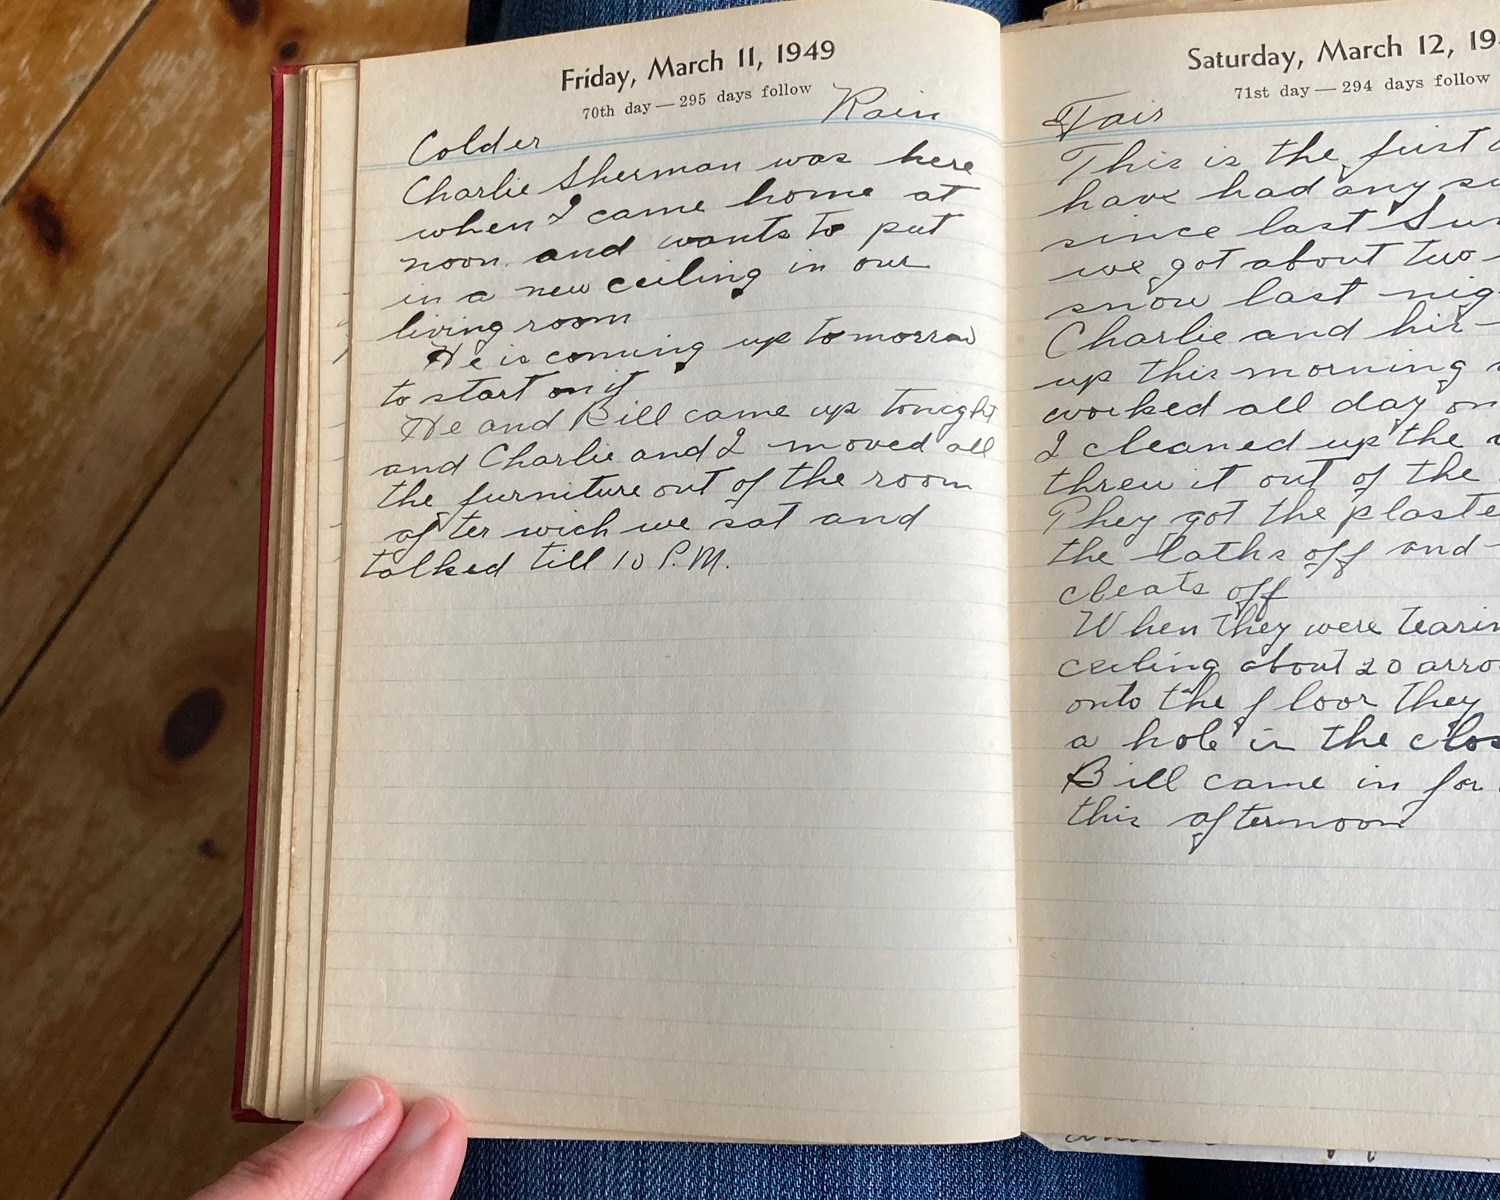 Friday, March 11, 1949
70th day — 295 days follow
Rain
Colder
Charlie Sherman was here
when I came home at
noon and wants to put
in a new ceiling in our
living room
He is coming up tomorrow
to start on it
He and Bill came up tonight
and Charlie and I moved all
the furniture out of the room
after wich we sat and
talked till 10 P.M.
Saturday, March 12, 19
71st day — 294 days follow
Fair
This is the first
have had any
since last
we got about two
snow last
Charlie and his
up this morning
worked all day on
I cleaned up the
threw it out of the
They got the
the laths off and
cleats off
When they were
ceiling about 20
onto the floor they
a hole in the
Bill came in for
this afternoon